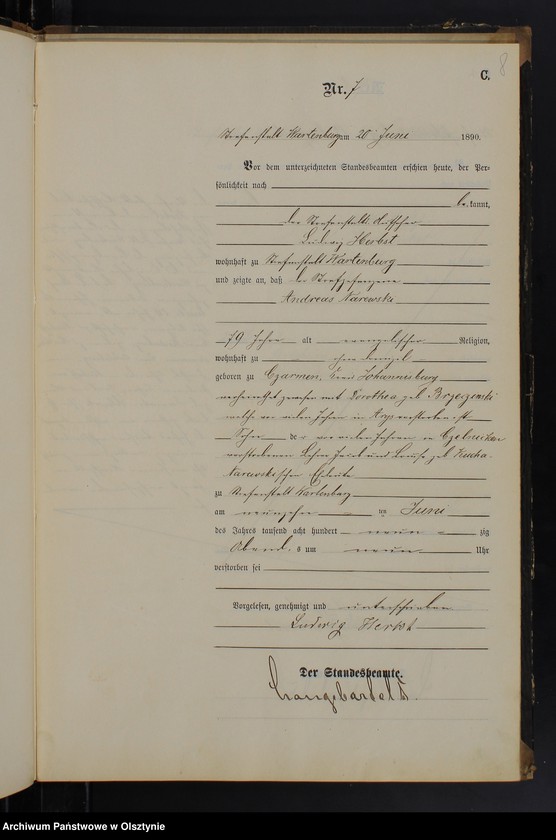 C.
8
Nr. 7
Strafanstalt Wartenburg am 20. Juni 1890.
Vor dem unterzeichneten Standesbeamten erschien heute, der Per-
sönlichkeit nach
be kannt,
der Strafanstalts Aufseher
Ludwig Herbst
wohnhaft zu Strafanstalt Wartenburg
und zeigte an, daß der Strafgefangene
Andreas Narewski
79 Jahre alt evangelischer Religion,
wohnhaft zu ohne
geboren zu Czarnen, Kreis Johannesburg
verheirathet gewesen mit Dorothea geb. Brzezinski
welche vor vielen Jahren in Arys verstorben ist
Sohn der vor vielen Jahren in
verstorbenen geb.
Narewski'schen Eheleute
zu Strafanstalt Wartenburg
am neunzehn ten Juni
des Jahres tausend acht hundert neun zig
Abend s um neun Uhr
verstorben sei
Vorgelesen, genehmigt und unterschrieben
Ludwig Herbst
Der Standesbeamte.
Archiwum Państwowe w Olsztynie